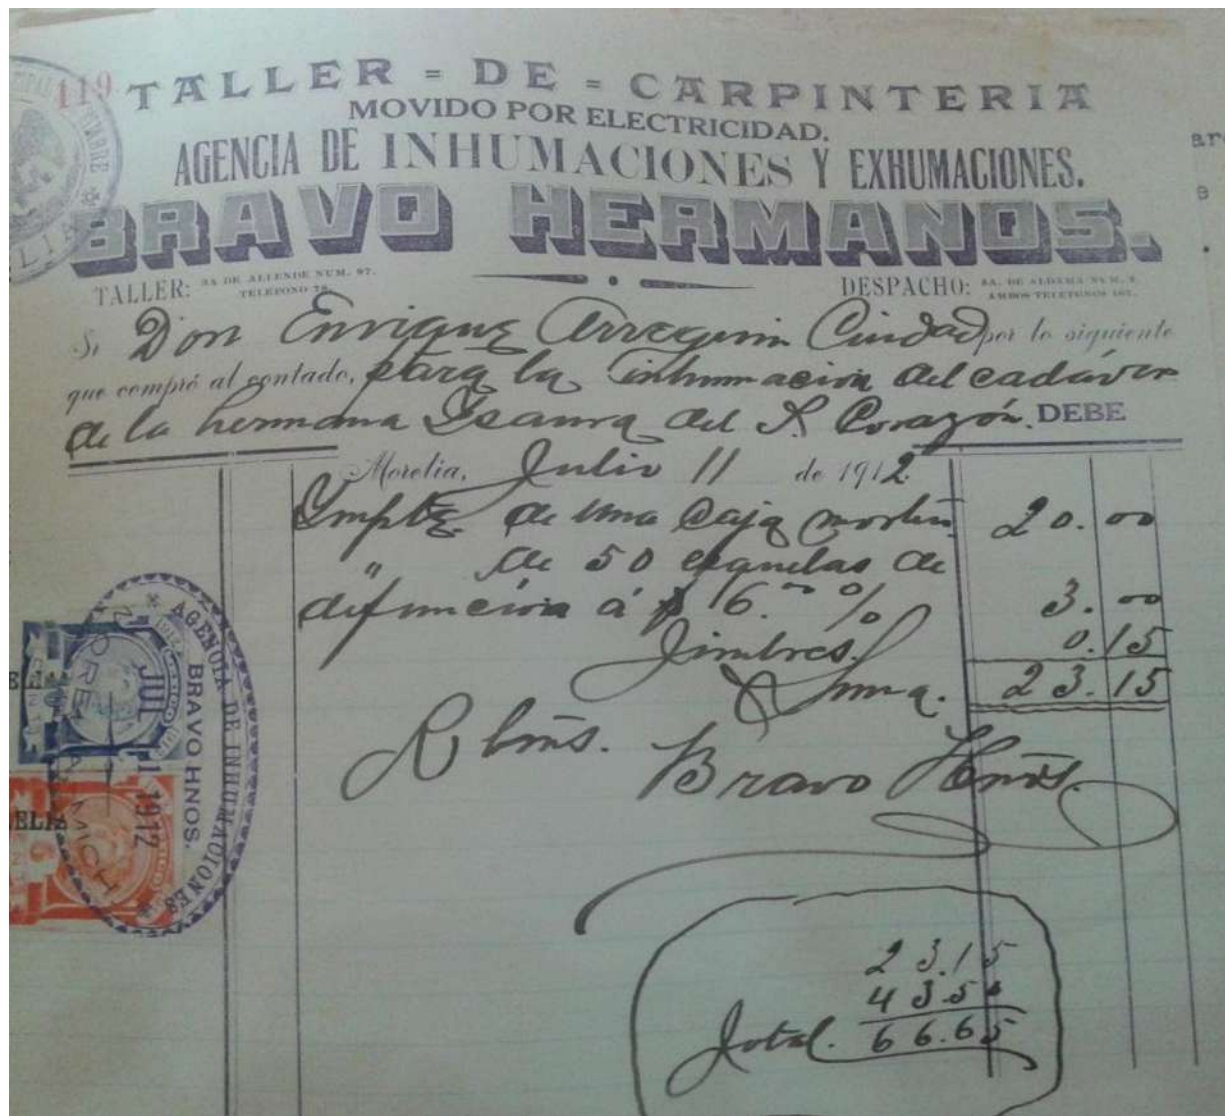 119
TALLER = DE = CARPINTERIA
MOVIDO POR ELECTRICIDAD.
AGENCIA DE INHUMACIONES Y EXHUMACIONES.
BRAVO HERMANOS.
TALLER: 3A DE ALLENDE NUM. 97.
TELEFONO
DESPACHO: 3A. DE ALDAMA NUM.
AMBOS TELEFONOS
S. Don Enrique Arreguin Ciudad por lo siguiente
que compró al contado, para la inhumacion del cadáver
de la hermana Ysaura del S. Corazón. DEBE
Morelia, Julio 11 de 1912.
Impte. de una caja 20.00
" de 50 esquelas de
defuncion á $ 6.00 % 3.00
Timbres. 0.15
Suma. 23.15
Bravo Hnos.
AGENCIA DE INHUMACIONES
BRAVO HNOS.
JUL 11 1912
MORELIA MICH
23.15
43.50
Total. 66.65